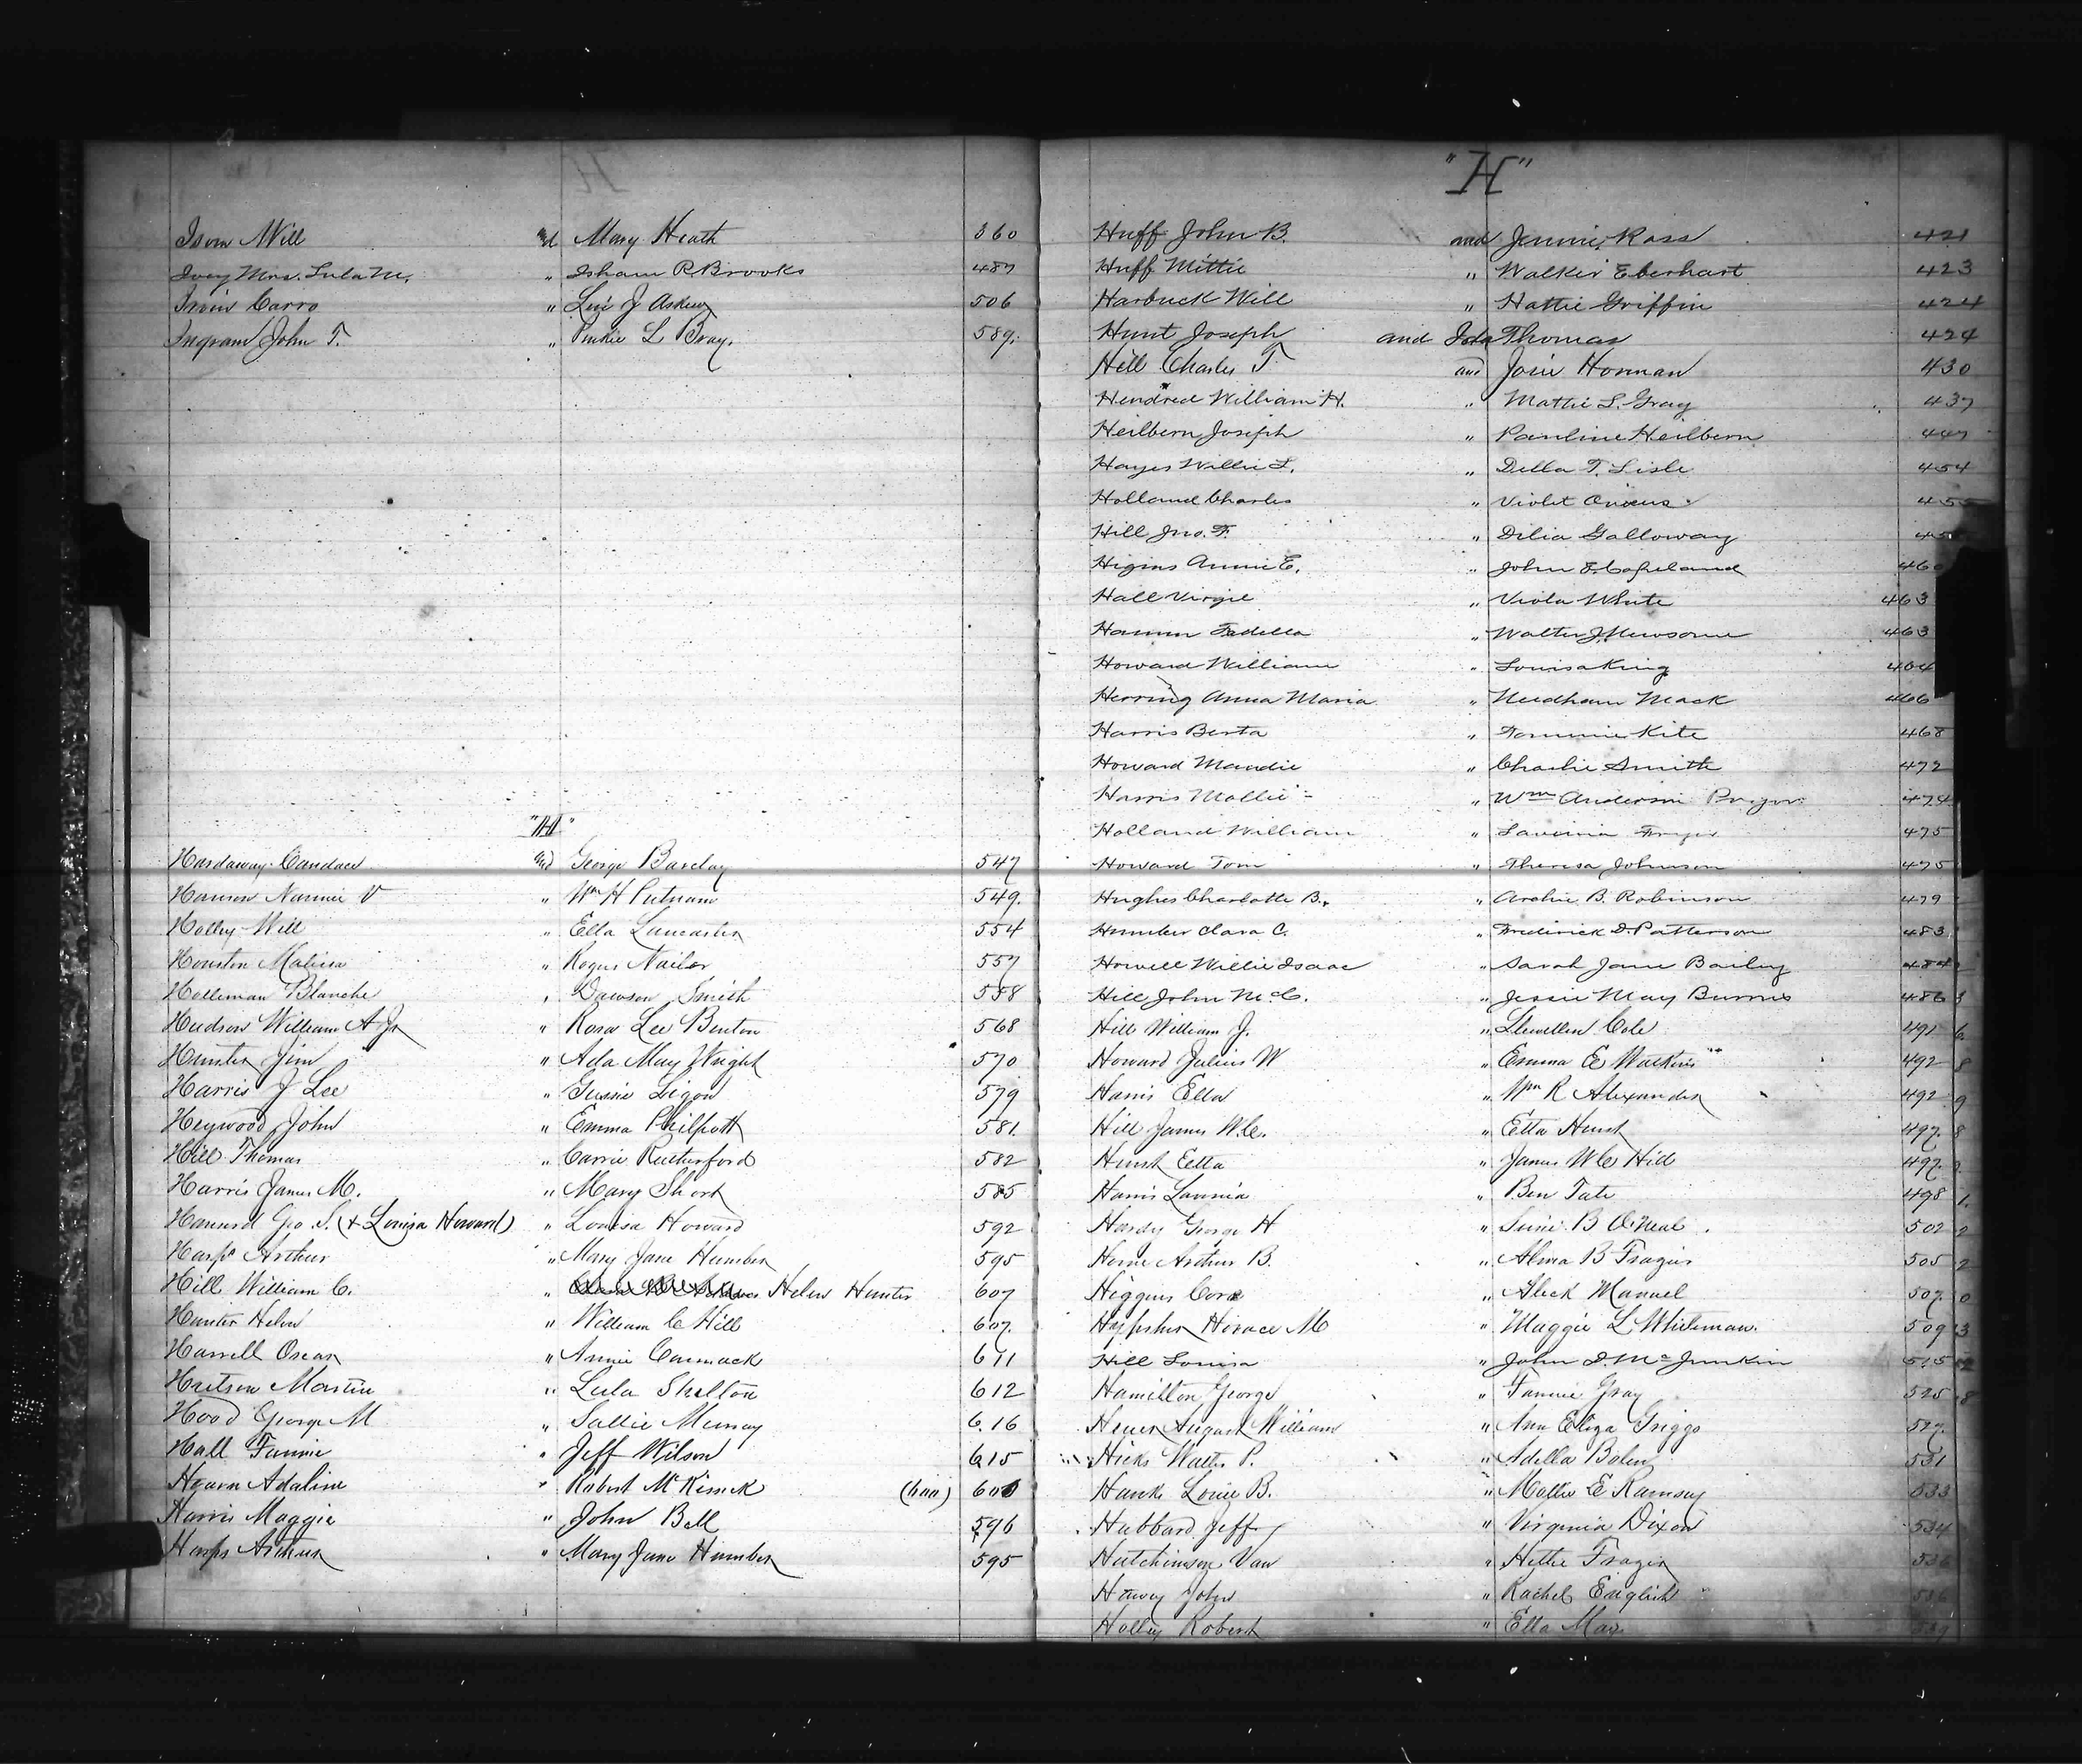 Isom Will " Mary Heath 360
Ivey Mrs. Lula M. " Isham R Brooks 487
Irvin Carro " Levi J Askew 506
Ingram John T. " Pinkie L Bray. 589.
"H"
Hardaway Candace and George Barclay 547
Hanson Nannie V " Wm H Putnam 549.
Holley Will " Ella Lancaster 554
Houston Malissa " Rogus Nailor 557
Holleman Blanche " Dawson Smith 558
Hudson William A Jr " Rosa Lee Benton 568
Hunter Jim " Ada May Wright 570
Harris J Lee " Gussie Ligon 579
Heywood John " Emma Philpott 581.
Hill Thomas " Carrie Rutherford 582
Harris James M. " Mary Short 585
Howard Geo. S. (+ Louisa Howard) " Louisa Howard 592
Harps Arthur " Mary Jane Humber 595
Hill William C. " Helen Hunter 607
Hunter Helen " William C Hill 607.
Harrell Oscar " Annie Cormack 611
Hutson Martin " Lula Shelton 612
Hood George M " Sallie Murray 616
Hall Fannie " Jeff Wilson 615
Hearn Adaline " Robert McKissick (600) 600
Harris Maggie " John Bell 596
Harps Arthur " Mary Jane Humber 595
"H"
Huff John B. and Jennie Ross 421
Huff Mittie " Walker Eberhart 423
Harbuck Will " Hattie Griffin 424
Hunt Joseph and Ida Thomas 424
Hill Charles T and Josie Horman 430
Hendred William H. " Mattie L. Gray 437
Heilbern Joseph " Pauline Heilbern 447
Hayes Willie L. " Della T. Lisle 454
Holland Charles " Violet Owens 455
Hill Jno. F. " Delia Galloway
Higins Annie E. " John F. Copeland 460
Hall Virgil " Viola White 463
Hamm Fadella " Walter J. Newsome 463
Howard William " Louisa King 464
Herring Anna Maria " Needham Mack 466
Harris Berta " Tommie Kite 468
Howard Mandie " Charlie Smith 472
Harris Mollie " Wm Anderson Pryor 474
Holland William " Lavinia Fryer 475
Howard Tom " Theresa Johnson 475
Hughes Charlotte B. " Archie B. Robinson 479
Humber Clara C. " Frederick D. Patterson 483
Howell Willie Isaac " Sarah Jane Bailey 484
Hill John McC. " Jessie May Burrus 486
Hill William J. " Llewellen Cole 491
Howard Julius W " Emma E Watkins 492
Harris Ella " Wm R Alexander 492
Hill James W.C. " Etta Hurst 497.
Hurst Etta " James W C Hill 497.
Harris Lannia " Ben Tate 498
Hardy George H " Susie B O'Neal. 502
Horne Arthur B. " Alma B Frazier 505
Higgins Cora " Aleck Manuel 507.
Horace M " Maggie L Whiteman. 509
Hill Louisa " John D. McJunkin 515
Hamilton George " Fannie Gray 525
Heuer August William " Ann Eliza Griggs 527.
Hicks Walter P. " Adella Bolen 531
Hanks Louie B. " Mollie E Ramsay 533
Hubbard Jeff " Virginia Dixon 534
Hutchinson Van " Hettie Frazier 536
Harvey John " Rachel English 536
Holley Robert " Ella May